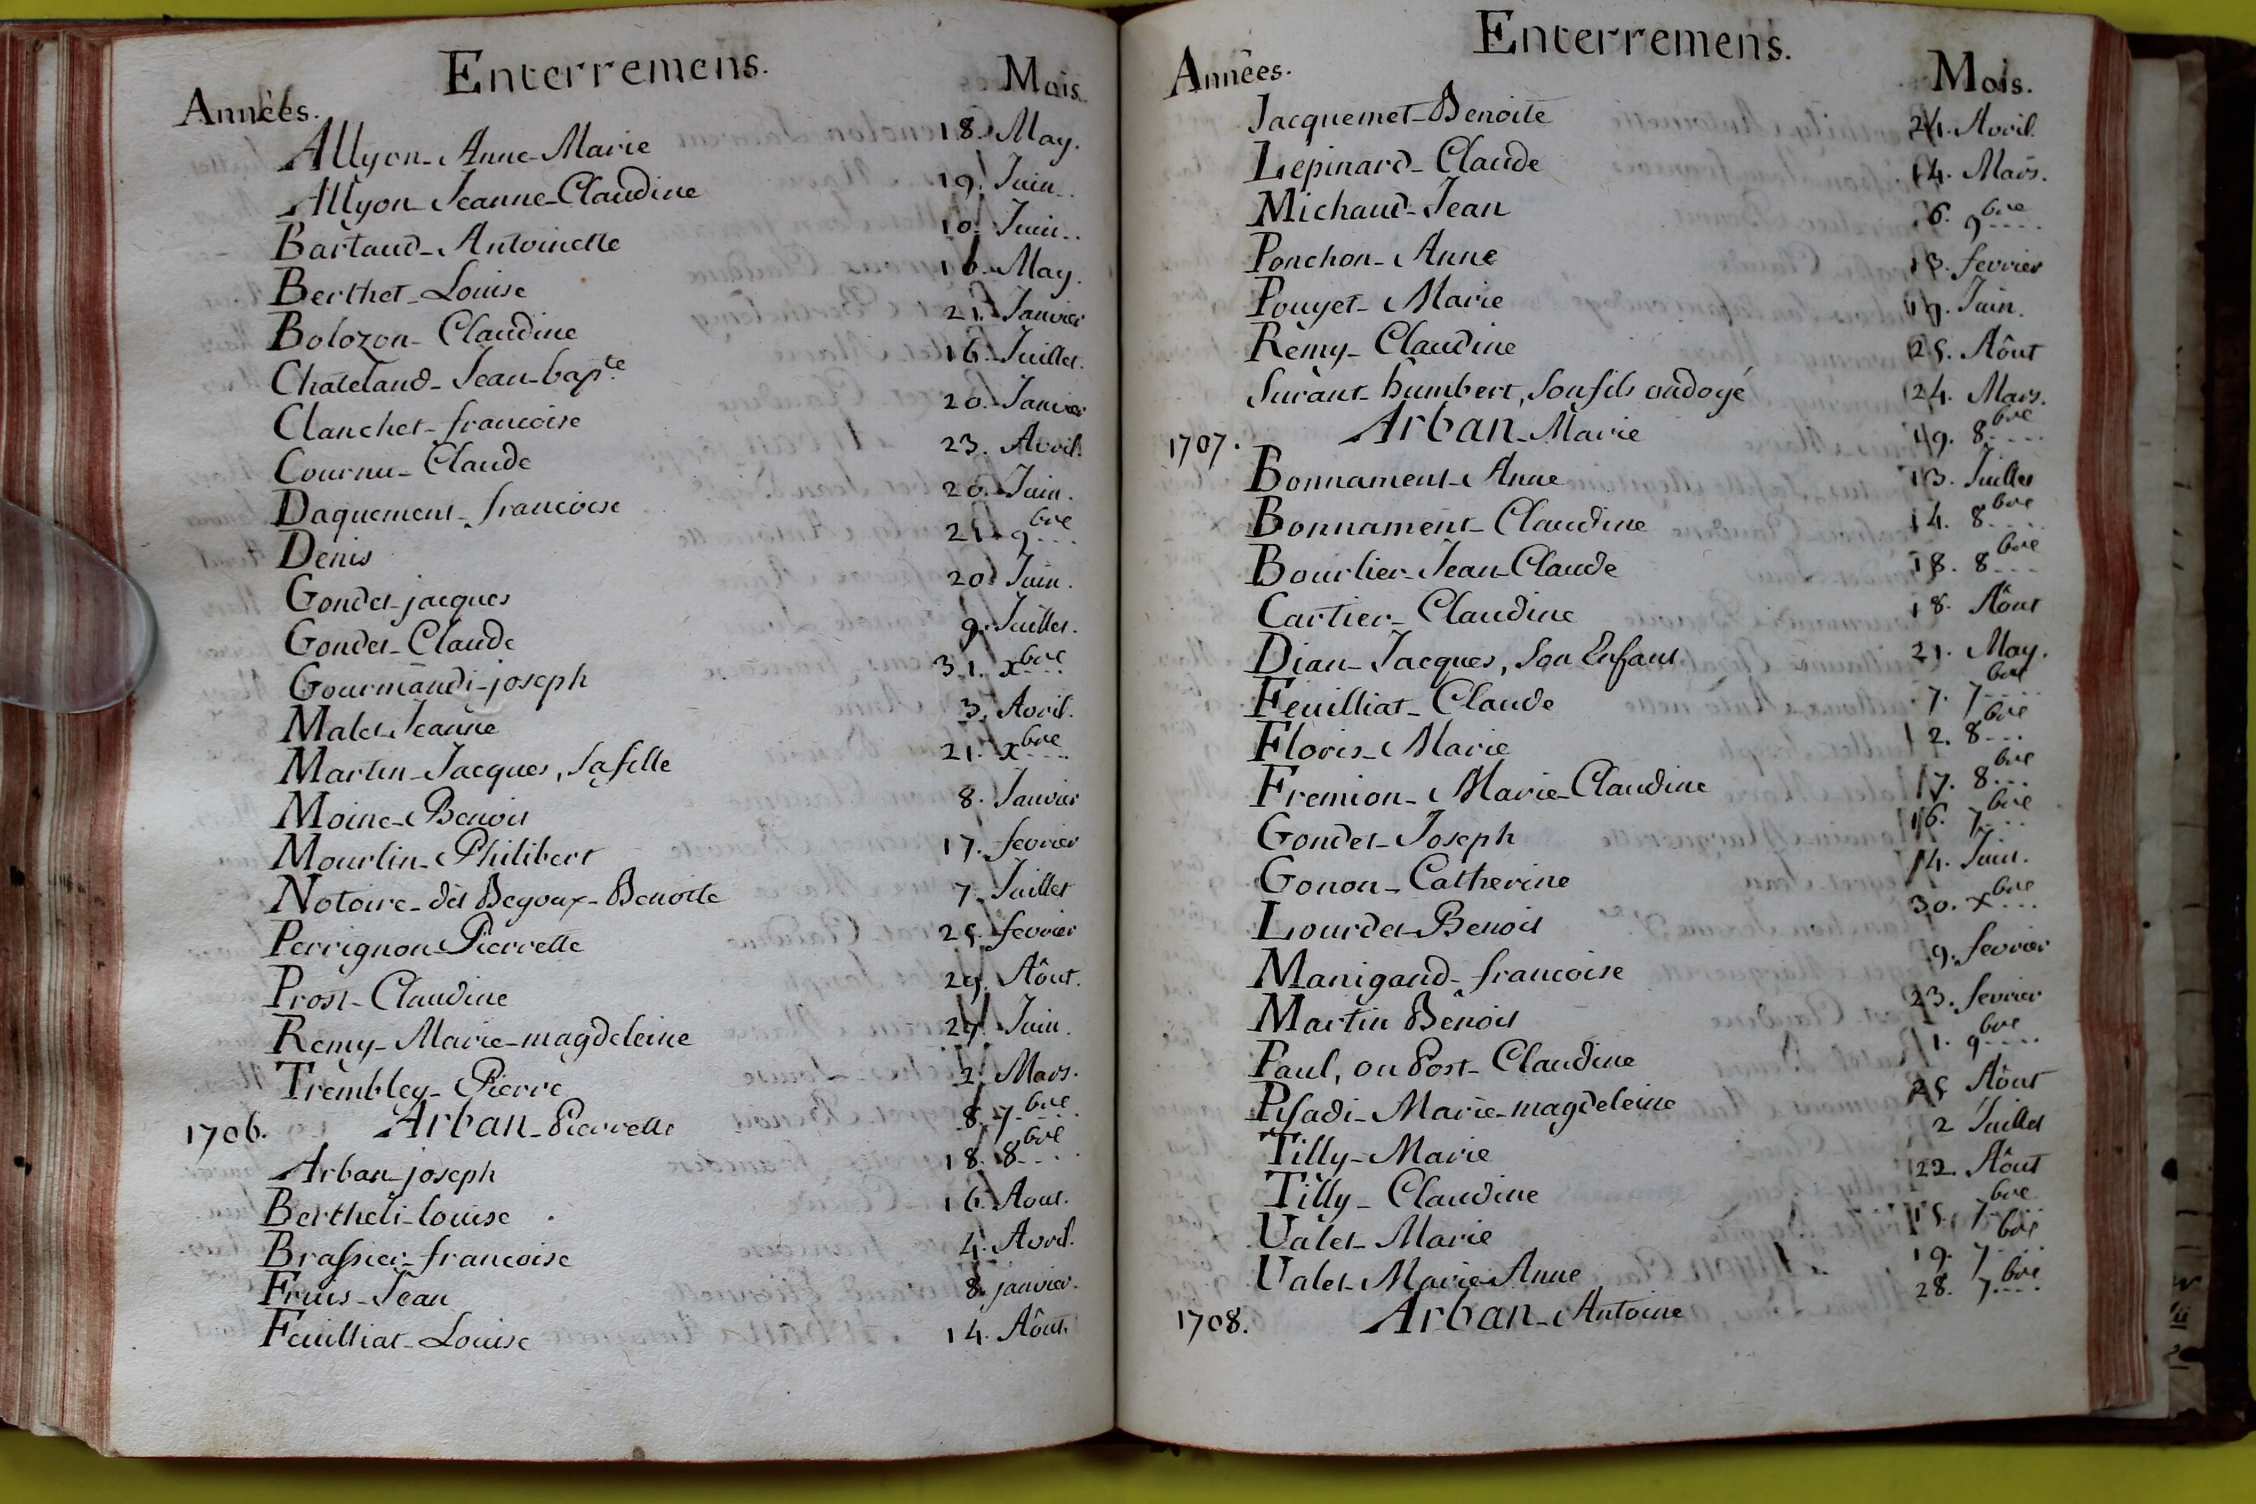 Enterremens.
Années. Mois.
Allyon - Anne - Marie 18. May.
Allyon - Jeanne - Claudine 19. Juin.
Bartaud - Antoinette 10. Juin.
Berthet - Louise 16. May.
Bolozon - Claudine 21. Janvier
Chateland - Jean - bapte 16. Juillet.
Clanchet - francoise 20. Janvier
Cournu - Claude 23. Avril.
Daquement - francoise 20. Juin.
Denis 21. 9bre
Gondet - jacques 20. Juin.
Gondet - Claude 9. Juillet.
Gourmandi - joseph 31. xbre
Malet Jeanne 3. Avril.
Martin - Jacques, sa fille 21. xbre
Moine - Benoit 8. Janvier
Mourlin - Philibert 17. fevrier
Notoire - dit Begoux - Benoite 7. Juillet
Perrignon Pierrette 25. fevrier
Prost - Claudine 29. Aôut.
Remy - Marie - magdeleine 27. Juin.
Trembley - Pierre 2. Mars.
1706. Arban - Pierrette 8. 7bre
Arban - joseph 18. 8bre
Bertheti - louise 16. Aout.
Brassier - francoise 4. Avril.
Fruis - Jean 8. janvier.
Feuilliat - Louise 14. Aôut.
Enterremens.
Années. Mois.
Jacquemet - Benoite 21. Avril.
Lepinard - Claude 14. Mars.
Michaud - Jean 26. 9bre
Ponchon - Anne 13. fevrier
Pouyet - Marie 19. Juin.
Remy - Claudine 25. Aôut
Surant - humbert, son fils ondoyé 24. Mars.
1707. Arban - Marie 19. 8bre
Bonnament - Anne 13. Juillet
Bonnament - Claudine 14. 8bre
Bourlier - Jean - Claude 18. 8bre
Cartier - Claudine 18. Aôut
Dian - Jacques, son Enfant 21. May.
Feuilliat - Claude 7. 7bre
Floris - Marie 12. 8bre
Fremion - Marie - Claudine 17. 8bre
Gondet - Joseph 16. 7bre
Gonon - Catherine 14. Juin.
Lourdet - Benoit 30. xbre
Manigand - francoise 9. fevrier
Martin Benoit 23. fevrier
Paul, ou Post - Claudine 1. 9bre
Pisadi - Marie - magdeleine 25 Aôut
Tilly - Marie 2 Juillet
Tilly - Claudine 22. Aôut
Valet - Marie 15. 7bre
Valet - Marie Anne 19. 7bre
1708. Arban - Antoine 28. 7bre